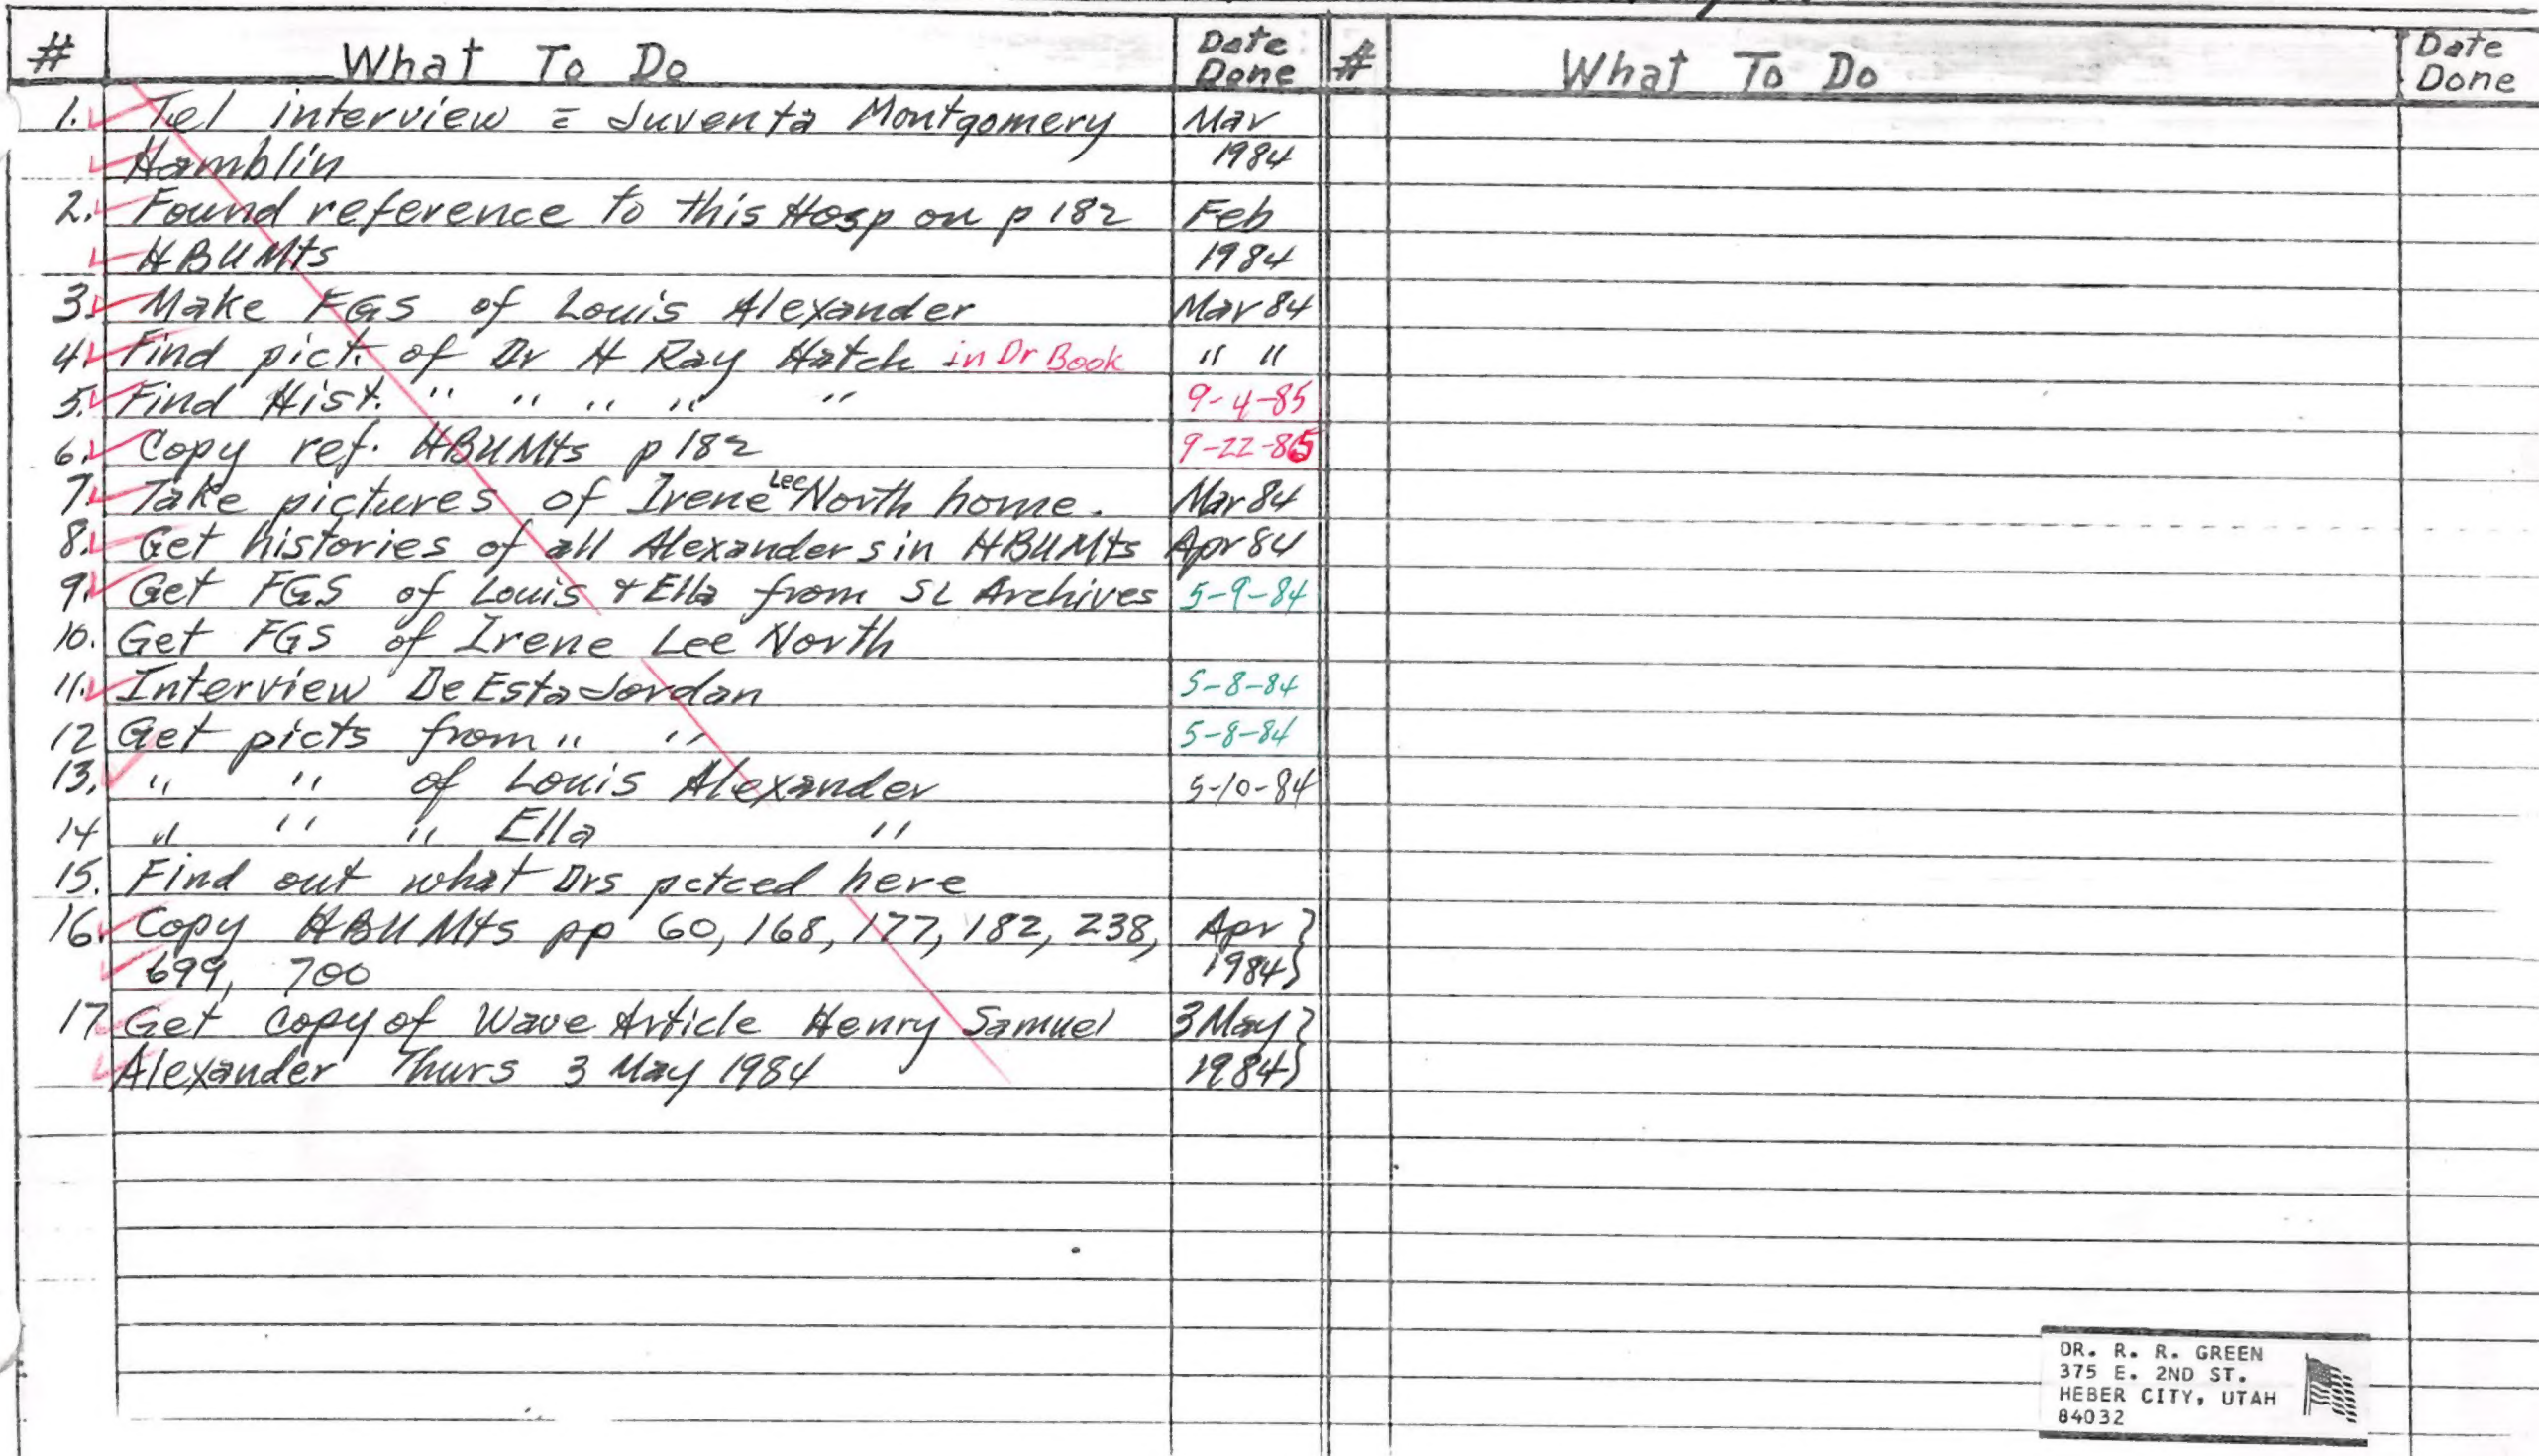 # What To Do Date Done # What To Do Date Done
1. Tel interview = Juventa Montgomery Mar
Hamblin 1984
2. Found reference to this Hosp on p 182 Feb
HBUMts 1984
3. Make FGS of Louis Alexander Mar 84
4. Find pict. of Dr H Ray Hatch in Dr Book " "
5. Find Hist. " " " " " 9-4-85
6. Copy ref. HBUMts p 182 9-22-85
7. Take pictures of Irene Lee North home. Mar 84
8. Get histories of all Alexanders in HBUMts Apr 84
9. Get FGS of Louis & Ella from SL Archives 5-9-84
10. Get FGS of Irene Lee North
11. Interview DeEsta Jordan 5-8-84
12 Get picts from " " 5-8-84
13. " " of Louis Alexander 5-10-84
14 " " " Ella "
15. Find out what Drs pctced here
16. Copy HBUMts pp 60, 168, 177, 182, 238, Apr }
699, 700 1984 }
17 Get copy of Wave Article Henry Samuel 3 May }
Alexander Thurs 3 May 1984 1984 }
DR. R. R. GREEN
375 E. 2ND ST.
HEBER CITY, UTAH
84032